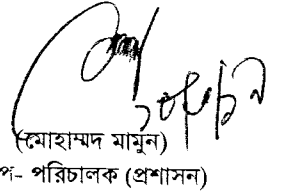 (মোহাম্মদ মামুন)
প- পরিচালক (প্রশাসন)